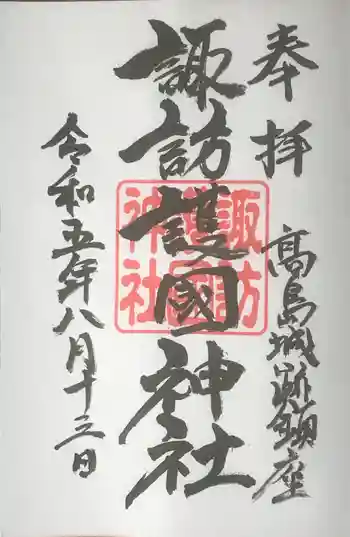 奉拝
高島城跡鎮座
諏訪護國神社
諏訪護國神社
令和五年八月十三日